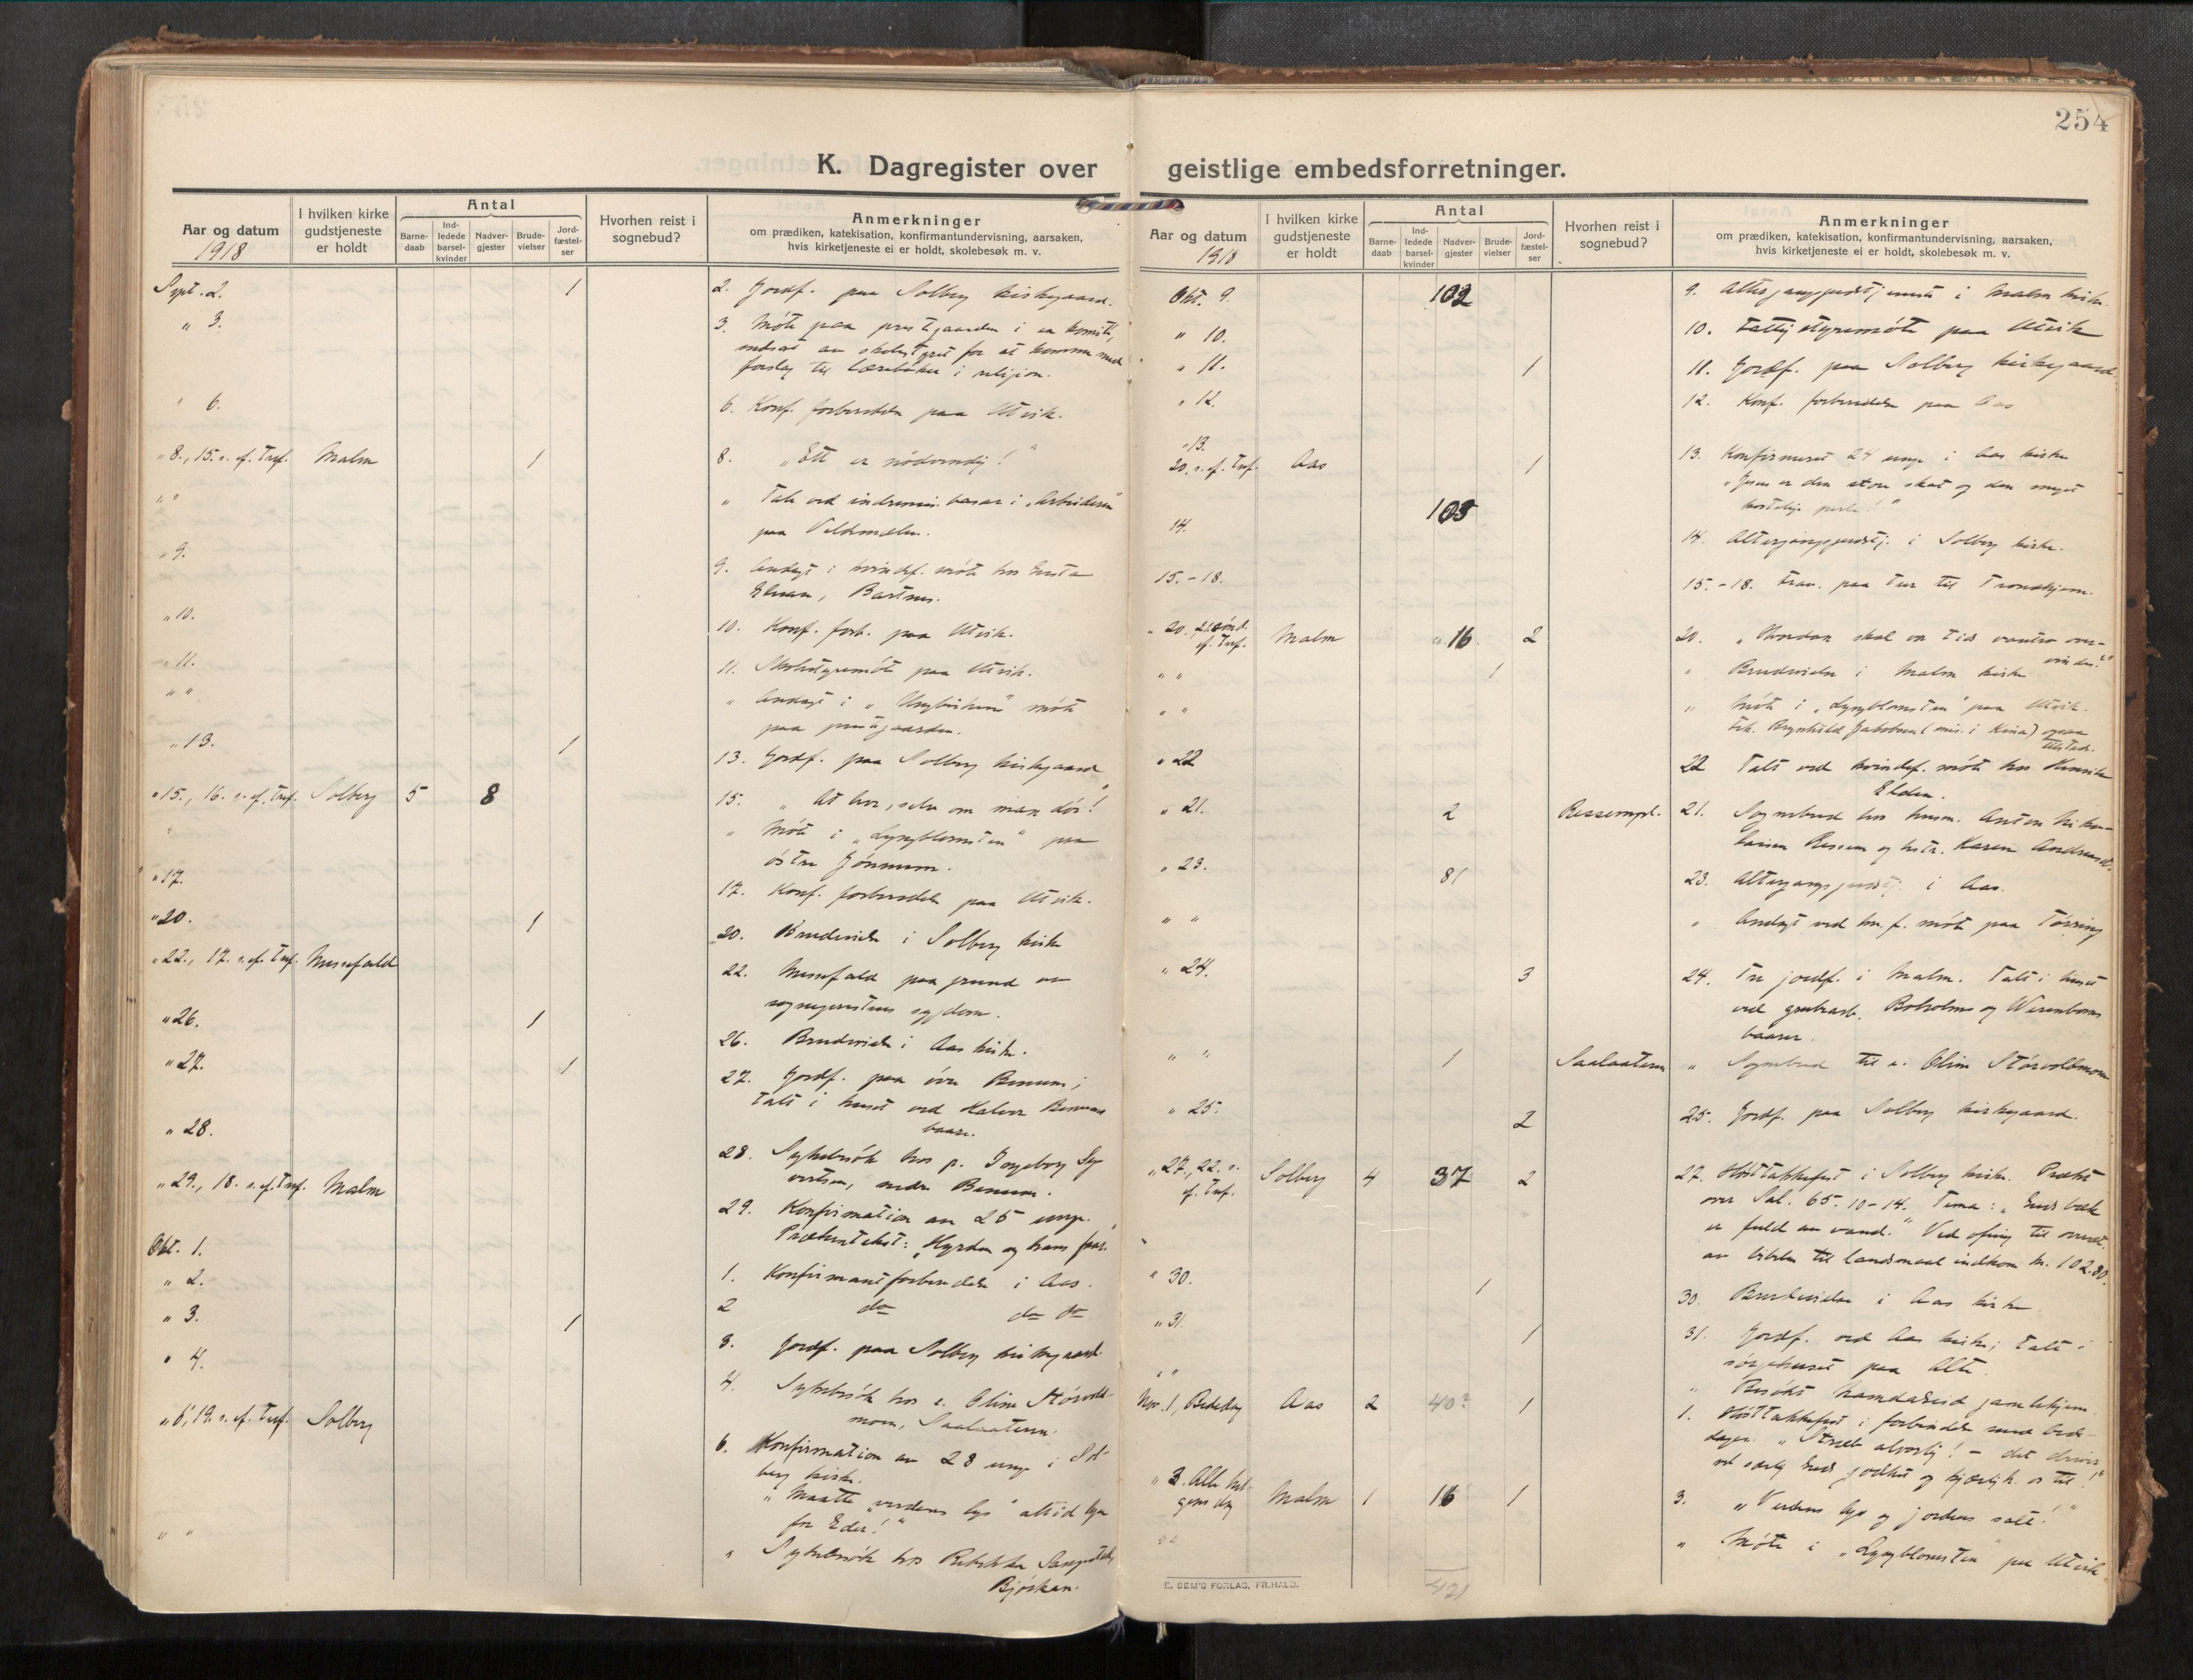 254
K. Dagregister over geistlige embedsforretninger.
Aar og datum
1918
I hvilken kirke gudstjeneste er holdt
Antal
Barne-daab
Ind-ledede barsel-kvinder
Nadver-gjester
Brude-vielser
Jord-fæstel-ser
Hvorhen reist i sognebud?
Anmerkninger
om prædiken, katekisation, konfirmantundervisning, aarsaken,
hvis kirketjeneste ei er holdt, skolebesøk m. v.
Sept. 2. 1 2. Jordf. paa Solberg kirkegaard.
" 3. 3. Møte paa prestgaarden i en komité,
nedsat av skolestyret for at komme med
forslag til lærebøker i religion.
" 6. 6. Konf. forberedelse paa Utvik.
" 8., 15. s. ef. Tref. Malm 1 8. "Ett er nødvendig!"
" " " Tale ved indremis. basar i "Arbeideren"
paa
" 9. 9. Andagt i kvindef. møte hos
Bartnes.
" 10. 10. Konf. forb. paa Utvik.
" 11. 11. Skolestyremøte paa Utvik.
" " " Andagt i møte
paa prestgaarden.
" 13. 1 13. Jordf. paa Solberg kirkegaard
" 15., 16. s. ef. Tref. Solberg 5 8 15. "At leve, selv om man dør!"
" " Møte i "Lysglomsten" paa
østre
" 17. 17. Konf. forberedelse paa Utvik.
" 20. 1 20. Brudevielse i Solberg kirke
" 22., 17. s. ef. Tref. Messefald 22. Messefald paa grund av
sogneprestens sygdom.
" 26. 1 26. Brudevielse i Aas kirke.
" 27. 1 27. Jordf. paa øvre Benum;
talt i huset ved Halvor Benums
baare.
" 28. 28. Sykebesøk hos p. Ingeborg Sy-
vertsen, nedre Benum.
" 29., 18. s. ef. Tref. Malm 29. Konfirmation av 25 unge.
Prækentekst: "Hyrden og hans faar."
Okt. 1. 1. Konfirmantforberedelse i Aas.
" 2. 2 do do do
" 3. 1 3. Jordf. paa Solberg kirkegaard.
" 4. 4. Sykebesøk hos e. Oline Størvold-
moen, Saalaatern.
" 6., 19. s. ef. Tref. Solberg 6. Konfirmation av 28 unge i Sol-
berg kirke.
"Maatte "verdens lys" altid lyse
for Eder!"
" " " Sykebesøk hos
Bjørkan.
Aar og datum
1918
I hvilken kirke gudstjeneste er holdt
Antal
Barne-daab
Ind-ledede barsel-kvinder
Nadver-gjester
Brude-vielser
Jord-fæstel-ser
Hvorhen reist i sognebud?
Anmerkninger
om prædiken, katekisation, konfirmantundervisning, aarsaken,
hvis kirketjeneste ei er holdt, skolebesøk m. v.
Okt. 9. 102 9. Altergangsgudstjeneste i Malm kirke.
" 10. 10. Fattigstyremøte paa Utvik
" 11. 1 11. Jordf. paa Solberg kirkegaard.
" 12. 12. Konf. forberedelse paa Aas
" 13.
20. s. ef. Tref. Aas 1 13. Konfirmeret 24 unge i Aas kirke
"Jesus er den store skat og den meget
kostelige perle!"
14. 103 14. Altergangsgudstj. i Solberg kirke.
15.-18. 15.-18. Frav. paa tur til Trondhjem.
" 20., 21. sønd.
ef. Tref. Malm 16 2 20. skal en tids vantro over-
vindes?"
" " 1 " Brudevielse i Malm kirke
" " " Møte i "Lysglomsten" paa Utvik.
frk. Brynhild Jakobsen (mis. i Kina)
" 22 22 Talt ved kvindef. møte hos Henrik
Elden.
" 21. 2 Ressempl. 21. Sognebud hos husm. Anton
Ressem og hstr. Karen
" 23. 81 23. Altergangsgudstj. i Aas.
" " " Andagt ved kv. f. møte paa Tørring
" 24. 3 24. Tre jordf. i Malm. Talt i huset
ved grubearb. Boholms og
baarer.
" " 1 Saalaatern " Sognebud til e. Oline Størvoldmoen
" 25. 2 25. Jordf. paa Solberg kirkegaard.
" 27., 22. s.
ef. Tref. Solberg 4 37 2 27. Høsttakkefest i Solberg kirke. Præket
over Sal. 65. 10-14. Tema: "Guds bæk
er fuld av vand." Ved ofring til overs.
av bibelen til landsmaal indkom kr. 102.80.
" 30. 1 30. Brudevielse i Aas kirke
" 31. 1 31. Jordf. ved Aas kirke; talt i
sørgehuset paa
" " " Besøkt Namdalseid gamlehjem.
Nov. 1, Bededag Aas 2 40? 1 1. Høsttakkefest i forbindelse med bede-
dagen. "Stræb alvorlig! - det driver
os særlig Guds godhet og kjærligh. os til!"
" 3. Alle hel-
gens dag Malm 1 16 1 3. "Verdens lys og jordens salt!"
" " " Møte i "Lysglomsten" paa Utvik.
421
E. SEM'S FORLAG, FR.HALD.